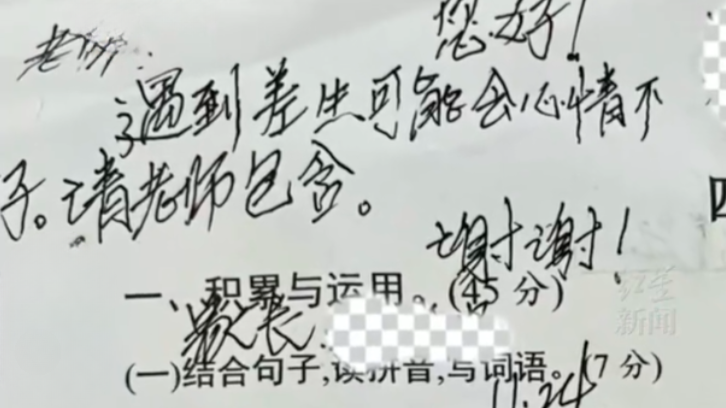 老师: 您好!
遇到差生可能会心情不
好。请老师包含。
谢谢!
一、积累与运用。(45分)
家长:
(一)结合句子,读拼音,写词语。(7分)
11.24
四
红星
新闻